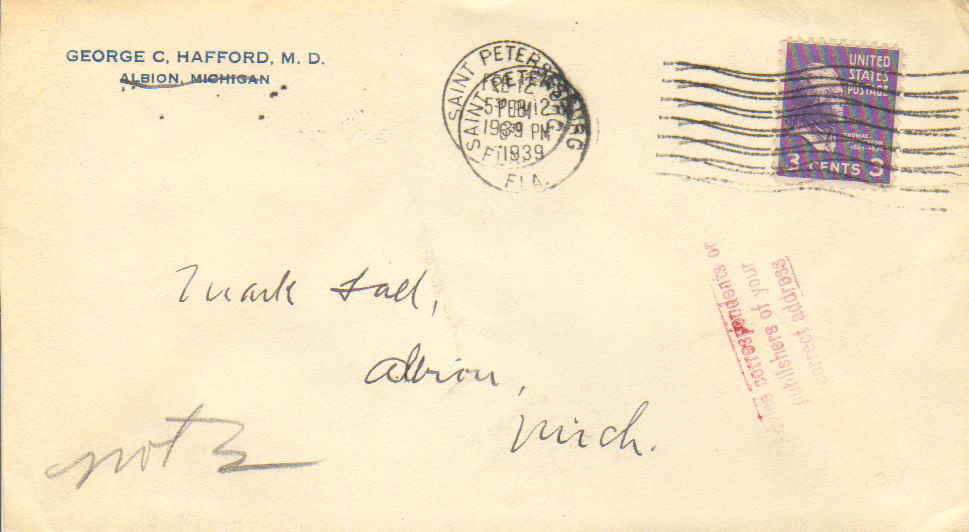 GEORGE C. HAFFORD, M. D.
ALBION, MICHIGAN
SAINT PETERSBURG
FEB 12
5 PM
1939
FLA.
SAINT PETERSBURG
FEB 12
6 PM
1939
FLA.
UNITED
STATES
POSTAGE
THOMAS
JEFFERSON
3 CENTS 3
Mark Hall,
Albion,
Mich.
correspondents or
publishers of your
correct address